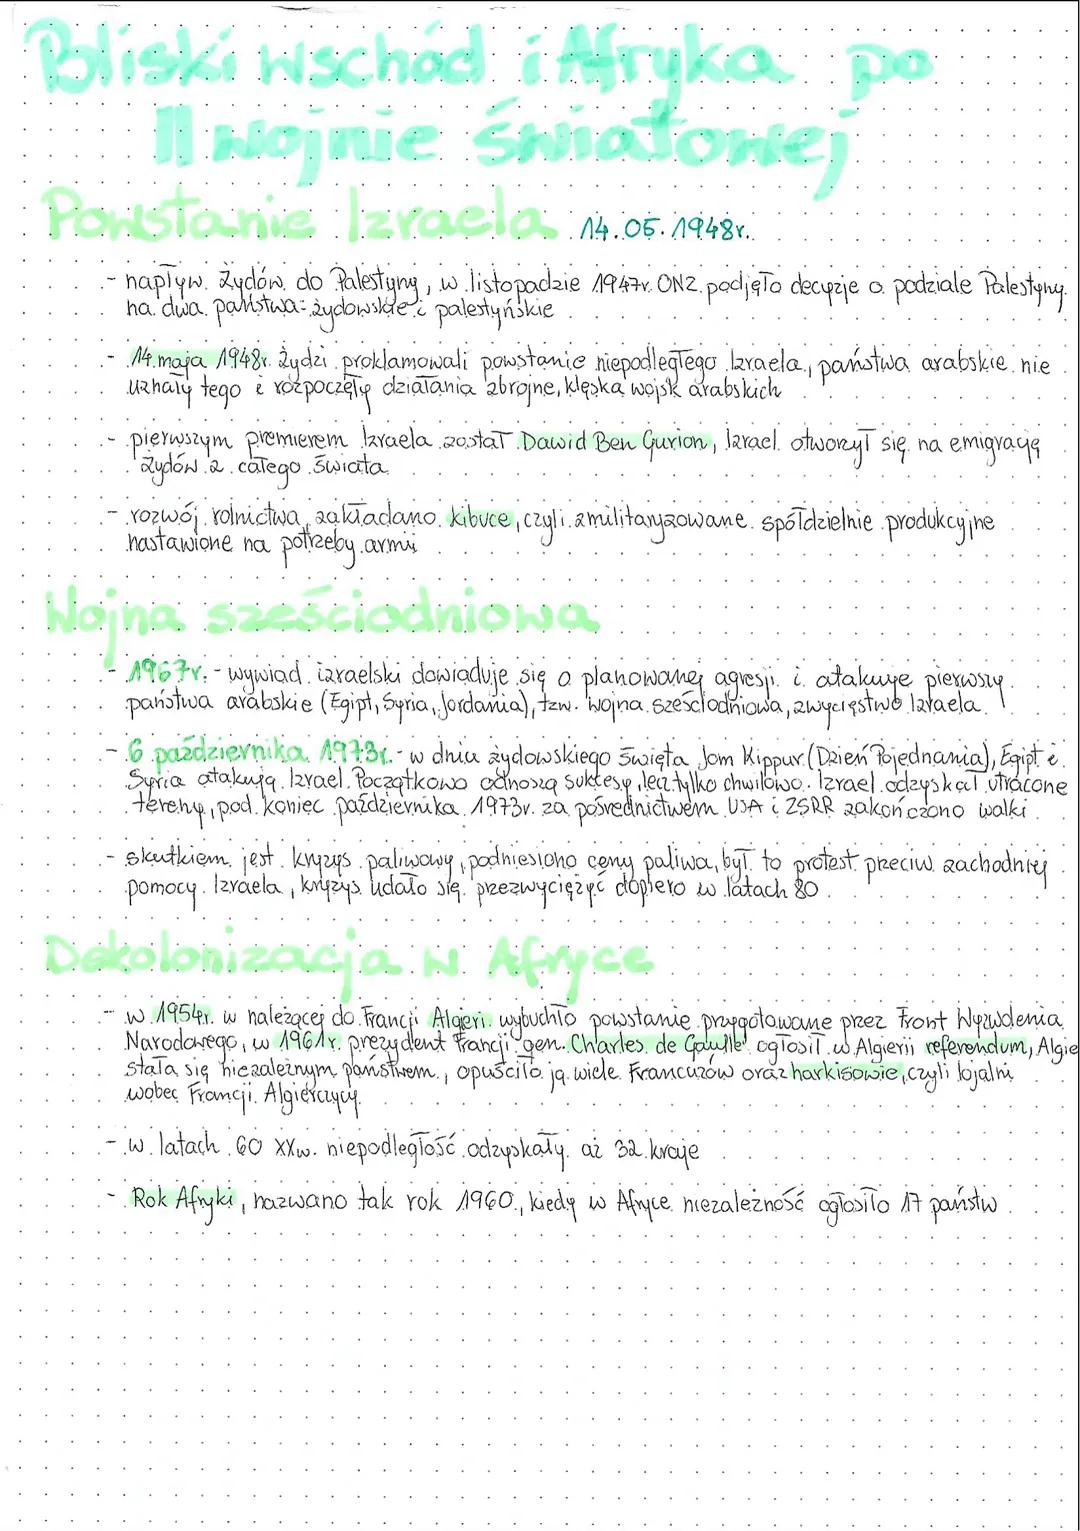 Bliski Wschód i Afryka po
II wojnie światowej
Powstanie Izraela 14.05.1948r.
- napływ Żydów do Palestyny, w listopadzie 1947r. ONZ podjęło decyzje o podziale Palestyny
na dwa państwa - żydowskie i palestyńskie
- 14 maja 1948r. Żydzi proklamowali powstanie niepodległego Izraela, państwa arabskie nie
uznały tego i rozpoczęły działania zbrojne, klęska wojsk arabskich
- pierwszym premierem Izraela został Dawid Ben Gurion, Izrael otworzył się na emigrację
Żydów z całego świata
- rozwój rolnictwa, zakładano kibuce, czyli zmilitaryzowane spółdzielnie produkcyjne
nastawione na potrzeby armii
Wojna sześciodniowa
- 1967r. - wywiad izraelski dowiaduje się o planowanej agresji i atakuje pierwszy
państwa arabskie (Egipt, Syria, Jordania), tzw. wojna sześciodniowa, zwycięstwo Izraela
- 6 października 1973r. - w dniu żydowskiego święta Jom Kippur (Dzień Pojednania), Egipt i
Syria atakują Izrael. Początkowo odnoszą sukcesy, lecz tylko chwilowo. Izrael odzyskał utracone
tereny, pod koniec października 1973r. za pośrednictwem USA i ZSRR zakończono walki
- skutkiem jest kryzys paliwowy, podniesiono ceny paliwa, był to protest przeciw zachodniej
pomocy Izraela, kryzys udało się przezwyciężyć dopiero w latach 80
Dekolonizacja w Afryce
- w 1954r. w należącej do Francji Algieri wybuchło powstanie przygotowane przez Front Wyzwolenia
Narodowego, w 1961r. prezydent Francji gen. Charles de Gaulle ogłosił w Algierii referendum, Algie
stała się niezależnym państwem, opuściło ją wiele Francuzów oraz harkisowie, czyli lojalni
wobec Francji Algierczycy
- w latach 60 XXw. niepodległość odzyskały aż 32 kraje
- Rok Afryki, nazwano tak rok 1960, kiedy w Afryce niezależność ogłosiło 17 państw